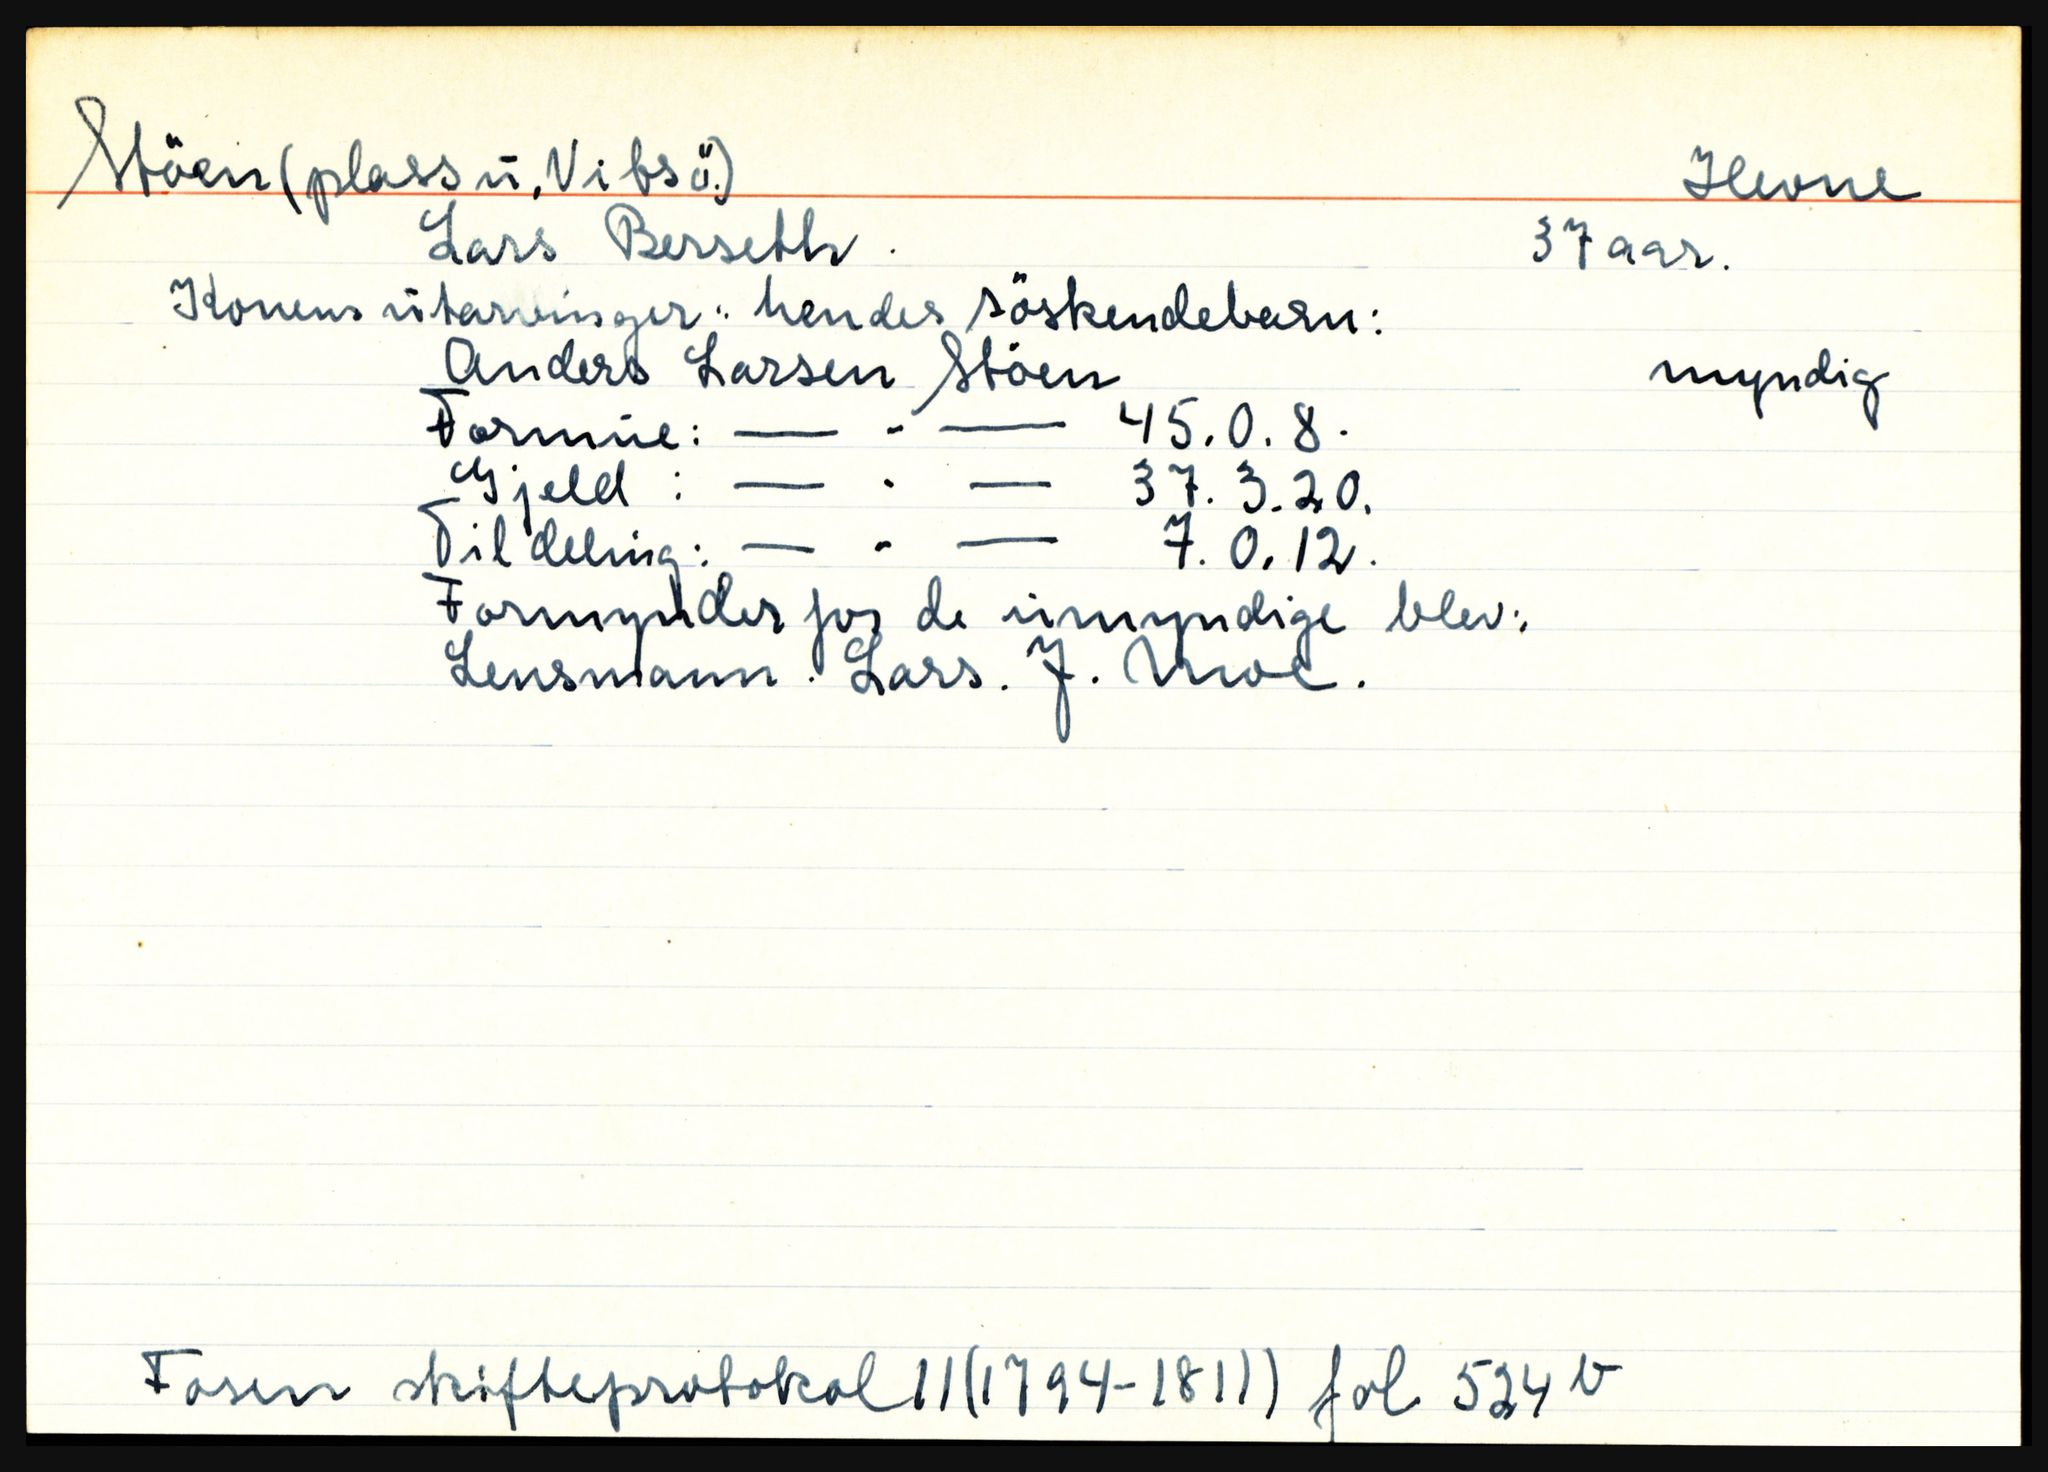 Stöen (plass u. Vibsö.) Hevne
Lars Berseth. 37 aar.
Konens utarvinger: hendes söskendebarn:
Anders Larsen Stöen myndig
Formue: — - — 45.0.8.
Gjeld : — - — 37.3.20.
Til deling: — - — 7.0.12.
Formynder for de umyndige blev:
Lensmann. Lars. J. Moe.
Fosen skifteprotokol 11 (1794-1811) fol 524 b